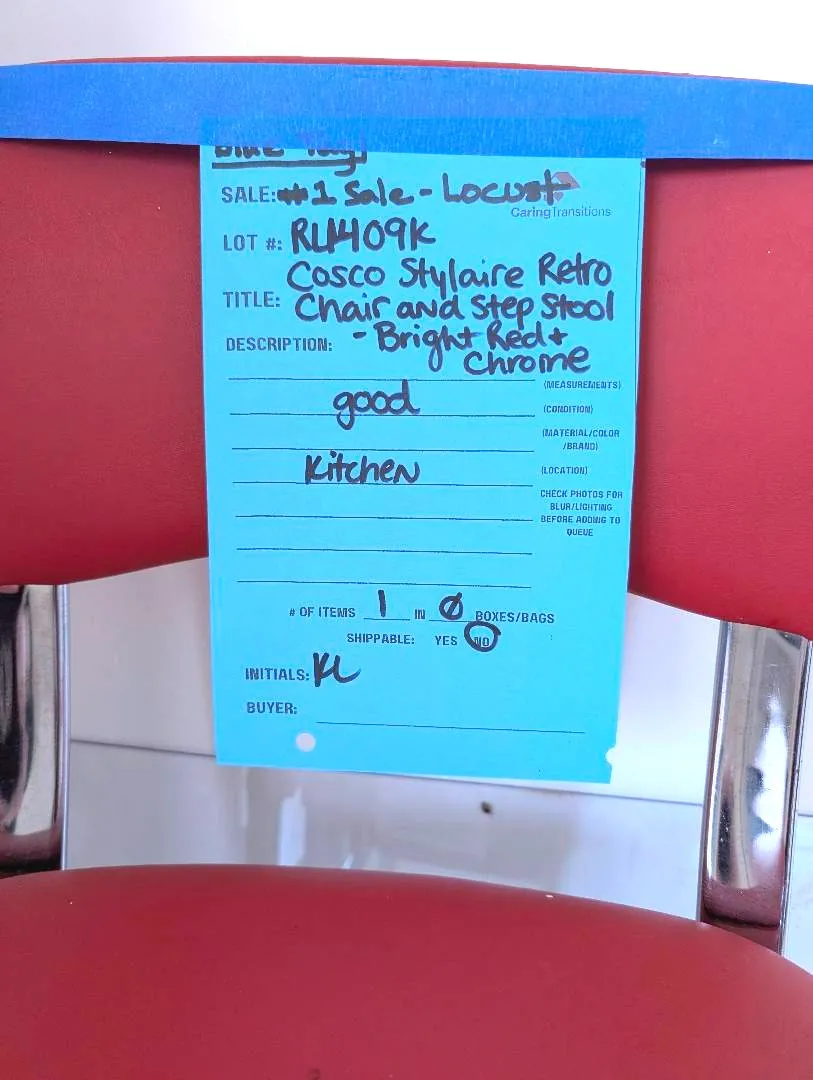 Blue Tag
SALE: #1 Sale - Locust
CaringTransitions
LOT #: RL1409K
Cosco Stylaire Retro
TITLE: Chair and Step Stool
DESCRIPTION: - Bright Red +
Chrome
(MEASUREMENTS)
good (CONDITION)
(MATERIAL/COLOR
/BRAND)
Kitchen (LOCATION)
CHECK PHOTOS FOR
BLUR/LIGHTING
BEFORE ADDING TO
QUEUE
# OF ITEMS 1 IN Ø BOXES/BAGS
SHIPPABLE: YES NO
INITIALS: KL
BUYER: